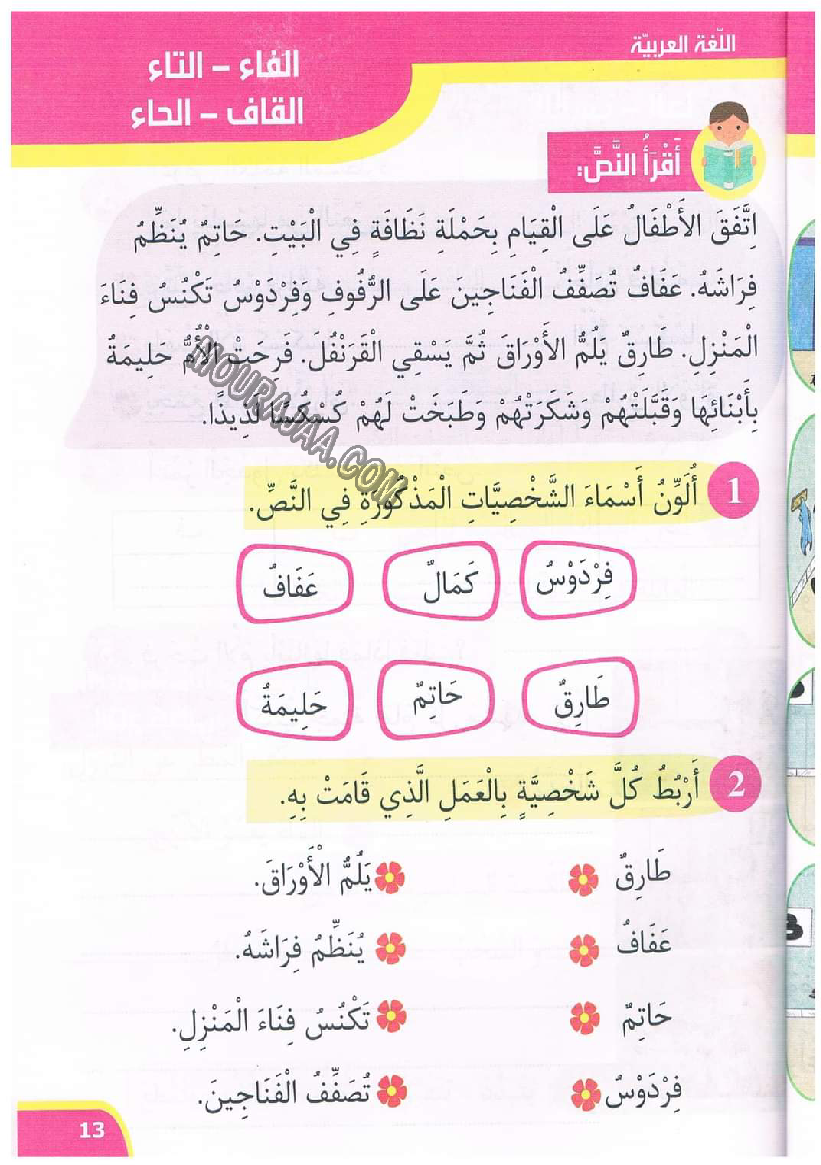 اللّغة العربيّة
الفاء – التاء
القاف – الحاء
أَقْرَأُ النَّصَّ:
اِتَّفَقَ الأَطْفَالُ عَلَى الْقِيَامِ بِحَمْلَةِ نَظَافَةٍ فِي الْبَيْتِ. حَاتِمٌ يُنَظِّمُ
فِرَاشَهُ. عَفَافُ تُصَفِّفُ الْفَنَاجِينَ عَلَى الرُّفُوفِ وَفِرْدَوْسُ تَكْنُسُ فِنَاءَ
الْمَنْزِلِ. طَارِقٌ يَلُمُّ الأَوْرَاقَ ثُمَّ يَسْقِي الْقَرَنْفُلَ. فَرِحَتْ الْأُمُّ حَلِيمَةُ
بِأَبْنَائِهَا وَقَبَّلَتْهُمْ وَشَكَرَتْهُمْ وَطَبَخَتْ لَهُمْ كُسْكُسًا لَذِيذًا.
MOURAJAA.COM
1 أُلَوِّنُ أَسْمَاءَ الشَّخْصِيَّاتِ الْمَذْكُورَةِ فِي النَّصِّ.
فِرْدَوْسُ كَمَالٌ عَفَافُ
طَارِقٌ حَاتِمٌ حَلِيمَةُ
2 أَرْبُطُ كُلَّ شَخْصِيَّةٍ بِالْعَمَلِ الَّذِي قَامَتْ بِهِ.
طَارِقٌ يَلُمُّ الْأَوْرَاقَ.
عَفَافُ يُنَظِّمُ فِرَاشَهُ.
حَاتِمٌ تَكْنُسُ فِنَاءَ الْمَنْزِلِ.
فِرْدَوْسُ تُصَفِّفُ الْفَنَاجِينَ.
13